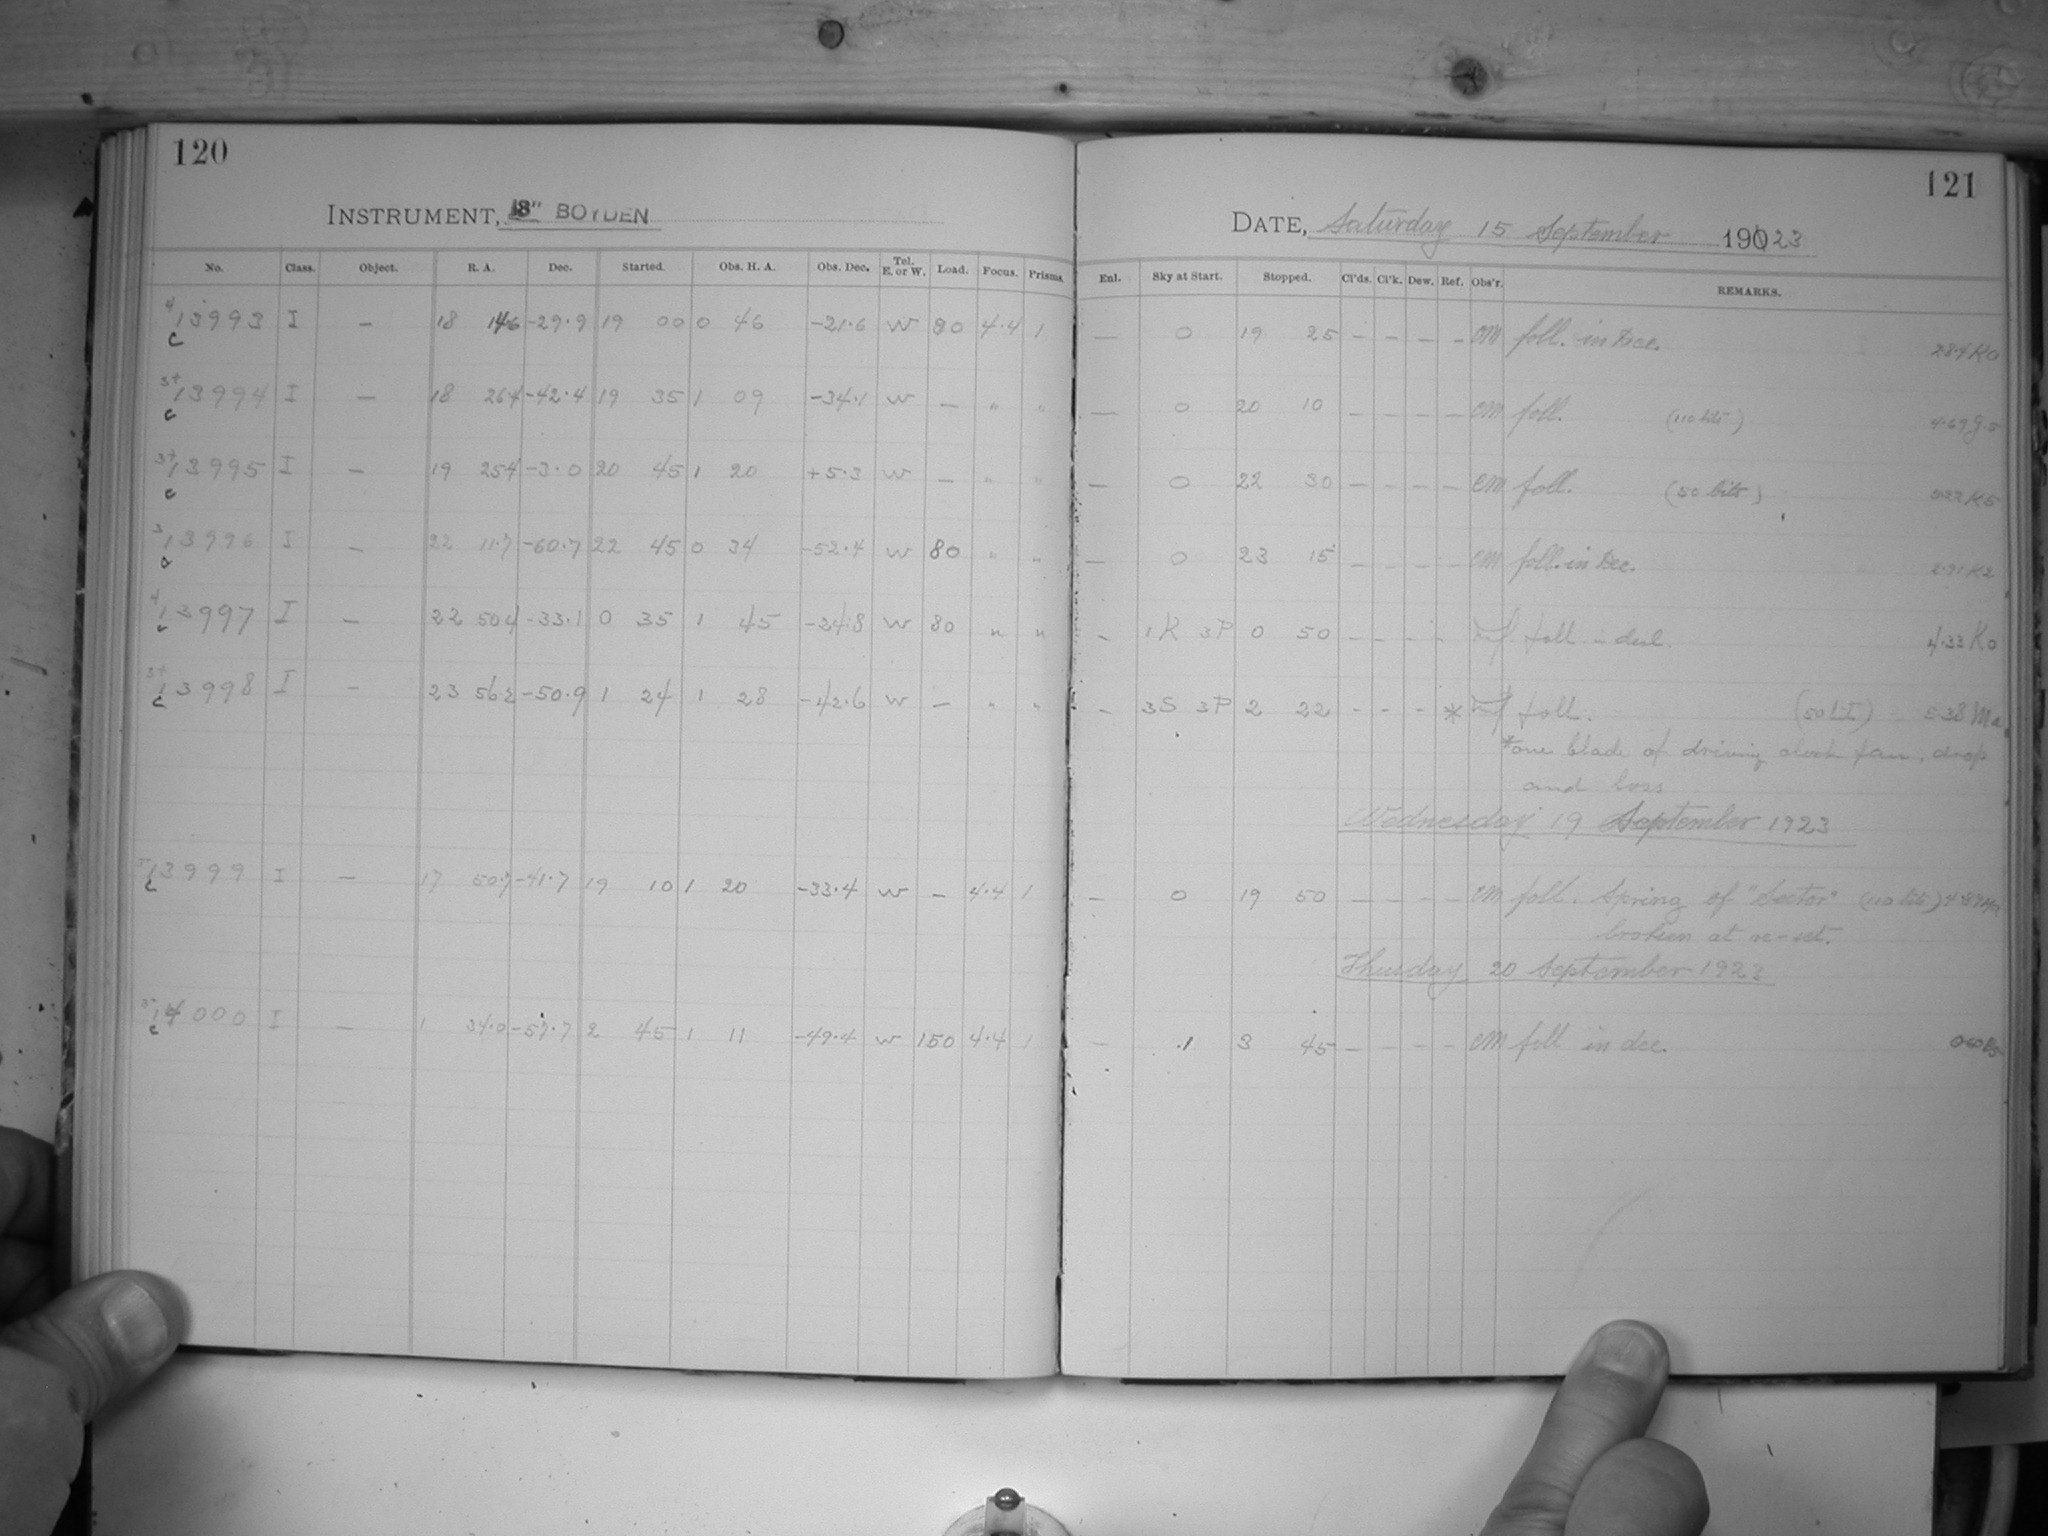 120
INSTRUMENT, 8" BOYDEN
No. Class. Object. R. A. Dec. Started. Obs. H. A. Obs. Dec. Tel. E. or W. Load. Focus. Prisms.
4 13993 I — 18 146 -29.9 19 00 0 46 -21.6 W 80 4.4 1
c
3+ 13994 I — 18 264 -42.4 19 35 1 09 -34.1 W — " "
c
3+ 13995 I — 19 254 -3.0 20 45 1 20 +5.3 W — " "
c
3 13996 I — 22 11.7 -60.7 22 45 0 34 -52.4 W 80 " "
c
4 13997 I — 22 504 -33.1 0 35 1 45 -24.8 W 80 " "
c
3+ 13998 I — 23 562 -50.9 1 24 1 28 -42.6 W — " "
c
13999 I — 17 50.7 -41.7 19 10 1 20 -33.4 W — 4.4 1
c
14000 I — 1 34.0 -57.7 2 45 1 11 -49.4 W 150 4.4 1
c
121
DATE, Saturday 15 September 190 23
Enl. Sky at Start. Stopped. Cl'ds. Cl'k. Dew. Ref. Obs'r. REMARKS.
— 0 19 25 — — — — CM foll. in Dec. 284 K0
— 0 20 10 — — — — CM foll. (110 bits) 4.69
— 0 22 30 — — — — CM foll. (50 bits) K5
— 0 23 15 — — — — CM foll. in Dec. 2.91 K2
— 1K 3P 0 50 — — — — foll in decl. 4.33 K0
— 3S 3P 2 22 — — — * foll. (50 bits) 5.38 Ma
*one blade of driving clock fan, drop
and loss
Wednesday 19 September 1923
— 0 19 50 — — — — CM foll. Spring of "Sector" (110 bits) 4.89
broken at re-set.
Thusday 20 September 1923
— .1 3 45 — — — — CM foll in dec.